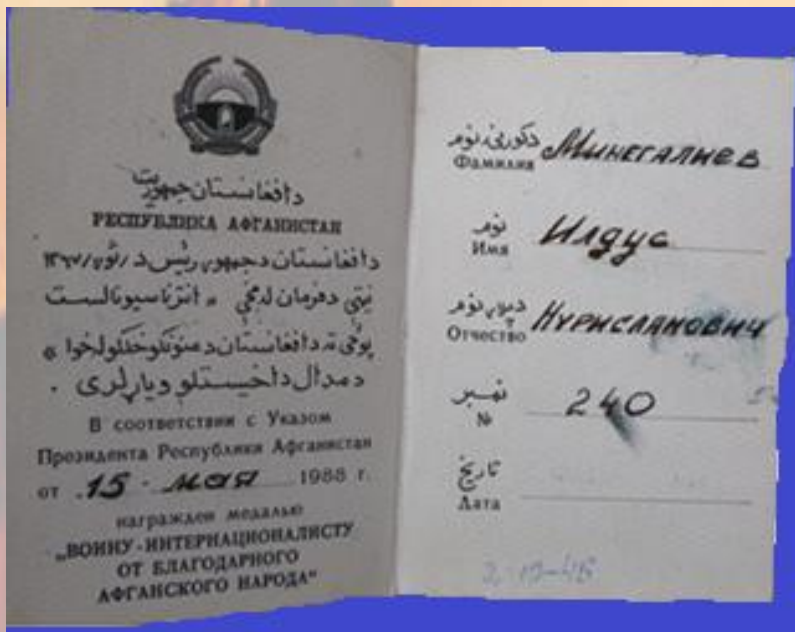 د افغانستان جمهوریت
РЕСПУБЛИКА АФГАНИСТАН
د افغانستان د جمهور رئیس د
نیټې د فرمان له مخې « انترناسیونالست
پوځی ته د افغانستان د
د مدال د اخیستلو ویاړ لری .
В соответствии с Указом
Президента Республики Афганистан
от 15 мая 1988 г.
награжден медалью
„ВОИНУ-ИНТЕРНАЦИОНАЛИСТУ
ОТ БЛАГОДАРНОГО
АФГАНСКОГО НАРОДА“
د کورنۍ نوم
Фамилия Минегалиев
نوم
Имя Илдус
د پلار نوم
Отчество Нурисланович
نمبر
№ 240
تاریخ
Дата